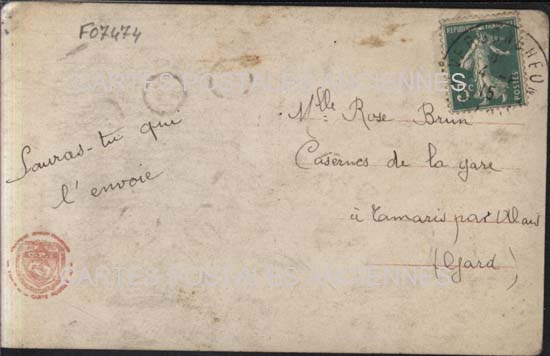 F07474
CARTES POSTALES ANCIENNES
Sauras-tu que
l'envoie
Mlle Rose Brun
Casernes de la gare
à Tamaris par Alais
(Gard)
CARTES POSTALES ANCIENNES
POSTES